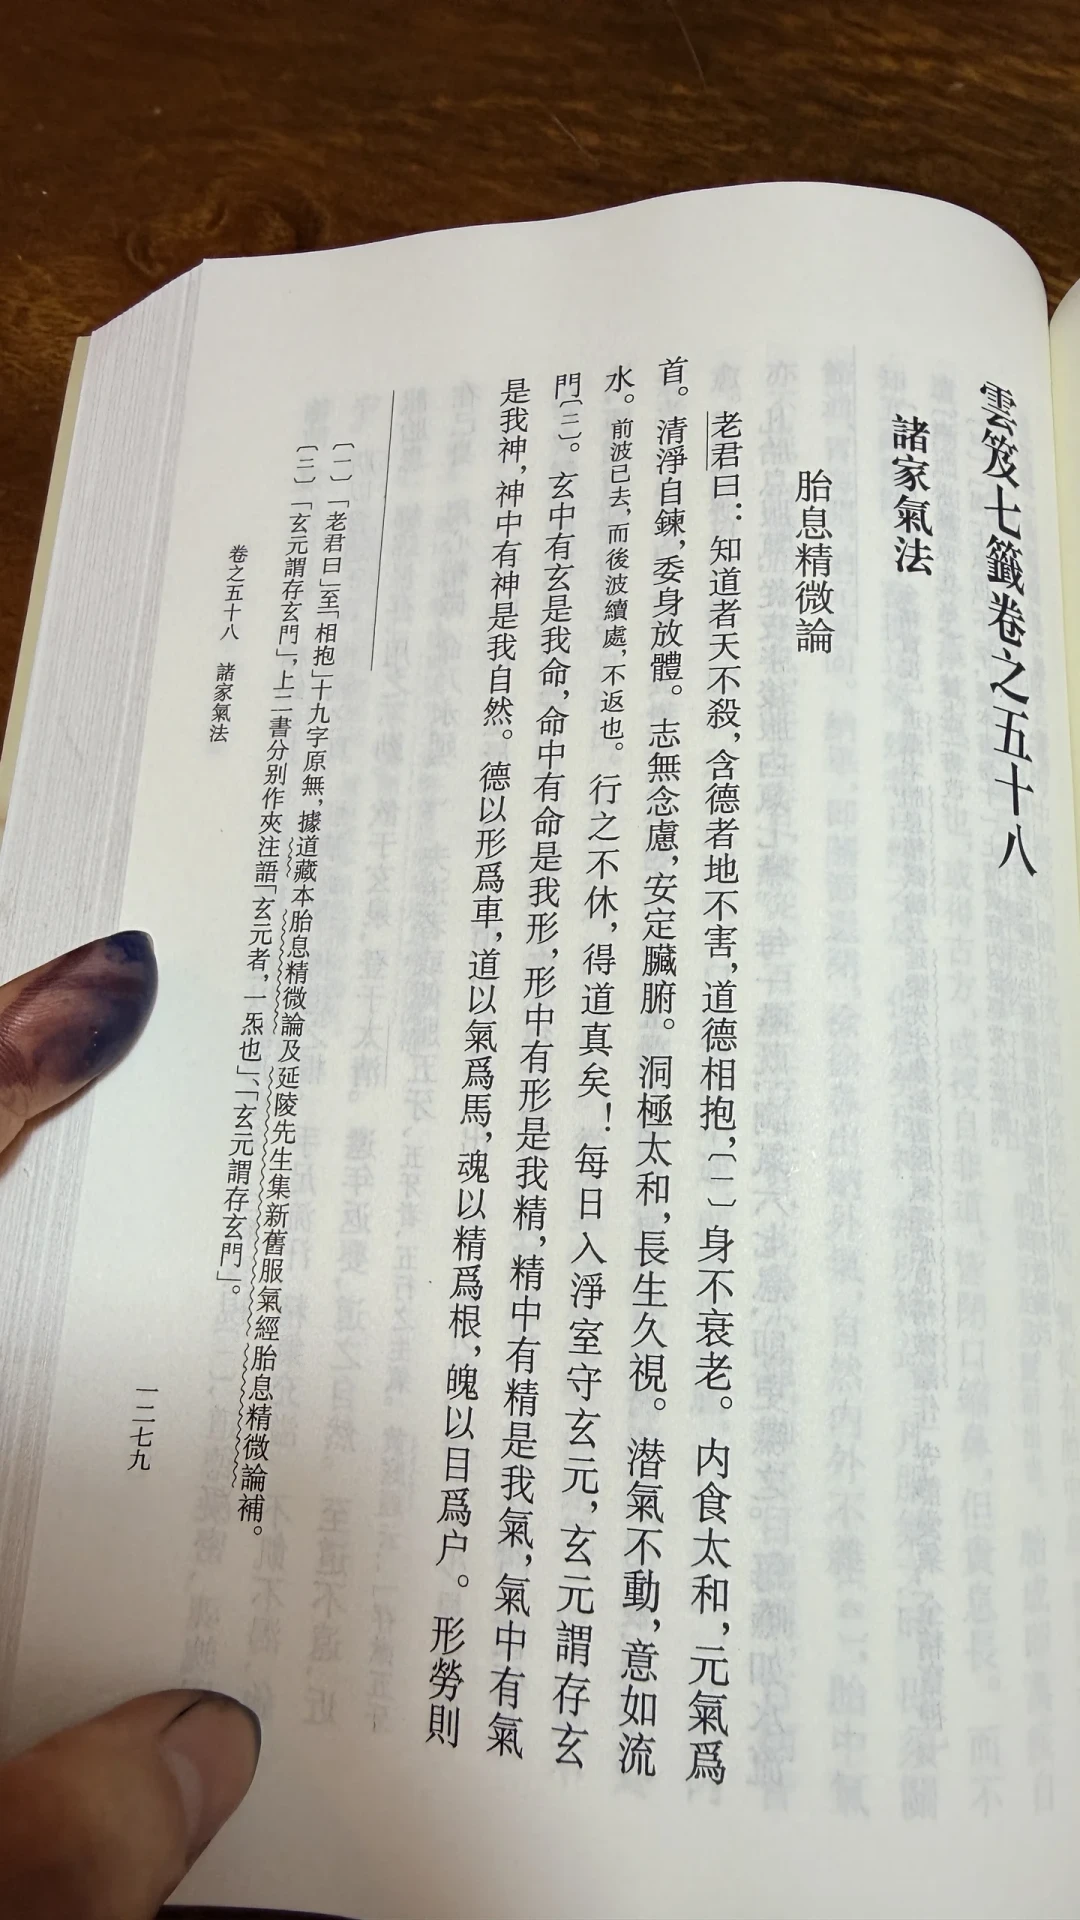 雲笈七籤卷之五十八
諸家氣法
胎息精微論
老君曰：知道者天不殺，含德者地不害，道德相抱，〔一〕身不衰老。内食太和，元氣爲
首。清淨自鍊，委身放體。志無念慮，安定臟腑。洞極太和，長生久視。潛氣不動，意如流
水。前波已去，而後波續處，不返也。行之不休，得道真矣！每日入淨室守玄元，玄元謂存玄
門〔二〕。玄中有玄是我命，命中有命是我形，形中有形是我精，精中有精是我氣，氣中有氣
是我神，神中有神是我自然。德以形爲車，道以氣爲馬，魂以精爲根，魄以目爲户。形勞則
〔一〕「老君曰」至「相抱」十九字原無，據道藏本胎息精微論及延陵先生集新舊服氣經胎息精微論補。
〔二〕「玄元謂存玄門」，上二書分别作夾注語「玄元者，一炁也」、「玄元謂存玄門」。
卷之五十八　諸家氣法
一二七九